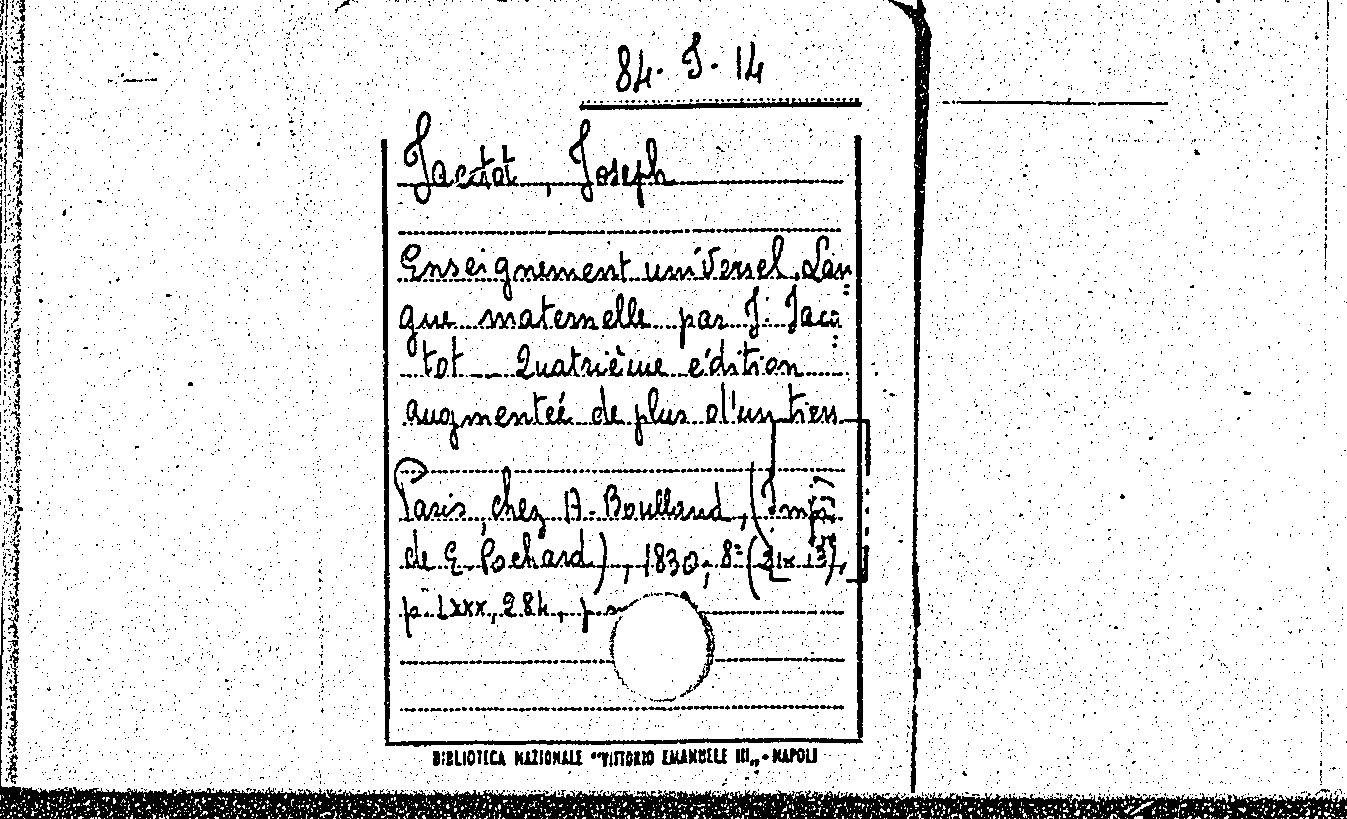 84. J. 14
Jacotot, Joseph
Enseignement universel. Lan=
gue maternelle par J. Jaco=
tot _ Quatrième édition
augmenteé de plus d'un tiers
Paris, chez A. Boulland, (Imp.
de E. Pochard), 1830, 8° (21x13),
p. LXXX, 284, p.
BIBLIOTECA NAZIONALE "VITTORIO EMANUELE III„ - NAPOLI